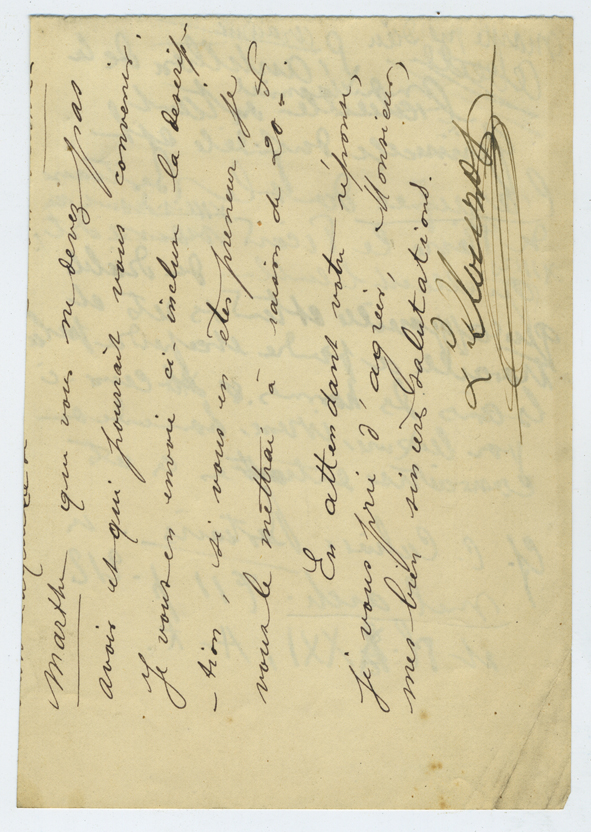 Marthe que vous ne devez pas
avoir et qui pourrait vous convenir.
Je vous en envoie ci-inclus la descrip-
-tion, si vous en êtes preneur, je
vous le mettrai à raison de 20
En attendant votre réponse,
je vous prie d'agréer, Monsieur,
mes bien sincères salutations.